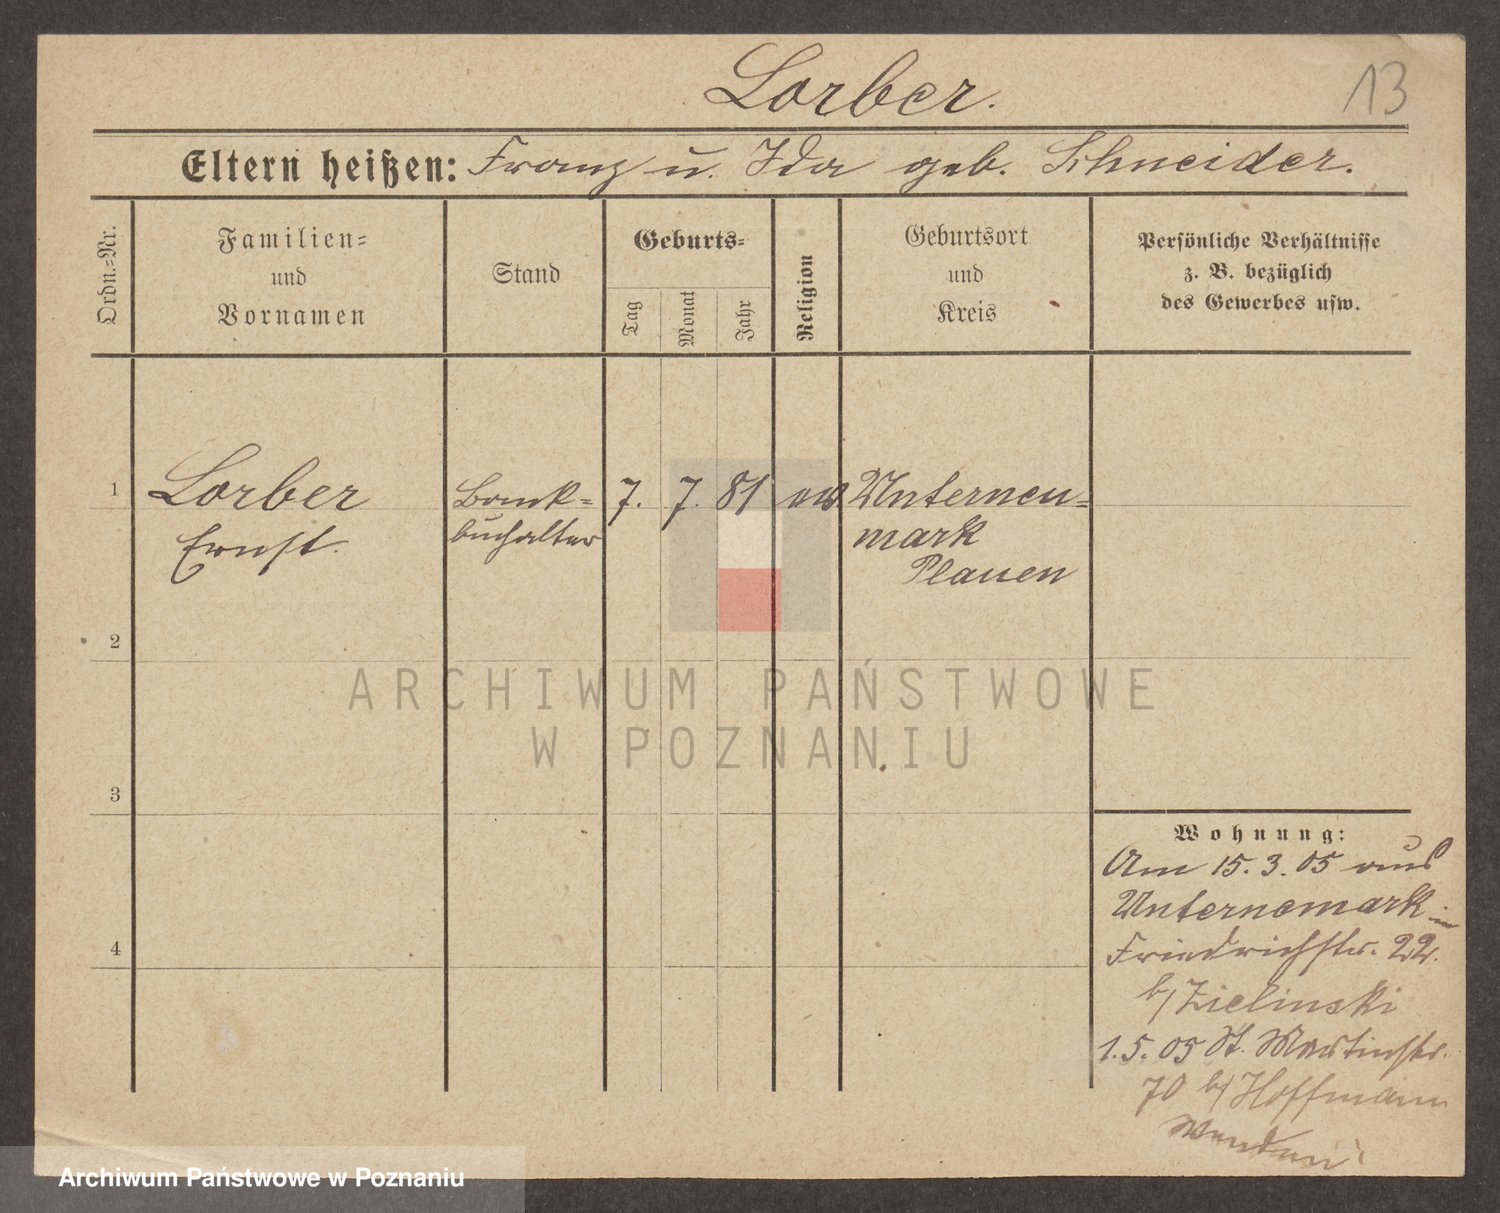 Lorber.
13
Eltern heißen: Franz u. Ida geb. Schneider.
Ordn.-Nr.
Familien-
und
Vornamen
Stand
Geburts-
Tag
Monat
Jahr
Religion
Geburtsort
und
Kreis
Persönliche Verhältnisse
z. B. bezüglich
des Gewerbes usw.
1
Lorber
Ernst.
Bank-
buchalter
7. 7. 81
Unterneu-
mark
Plauen
2
3
4
Wohnung:
Am 15.3.05 aus
Unternemark
Friedrichstr. 22.
b/ Zielinski
1.5.05 St. Martinstr.
70 b/ Hoffmann
ARCHIWUM PAŃSTWOWE
W POZNANIU
Archiwum Państwowe w Poznaniu